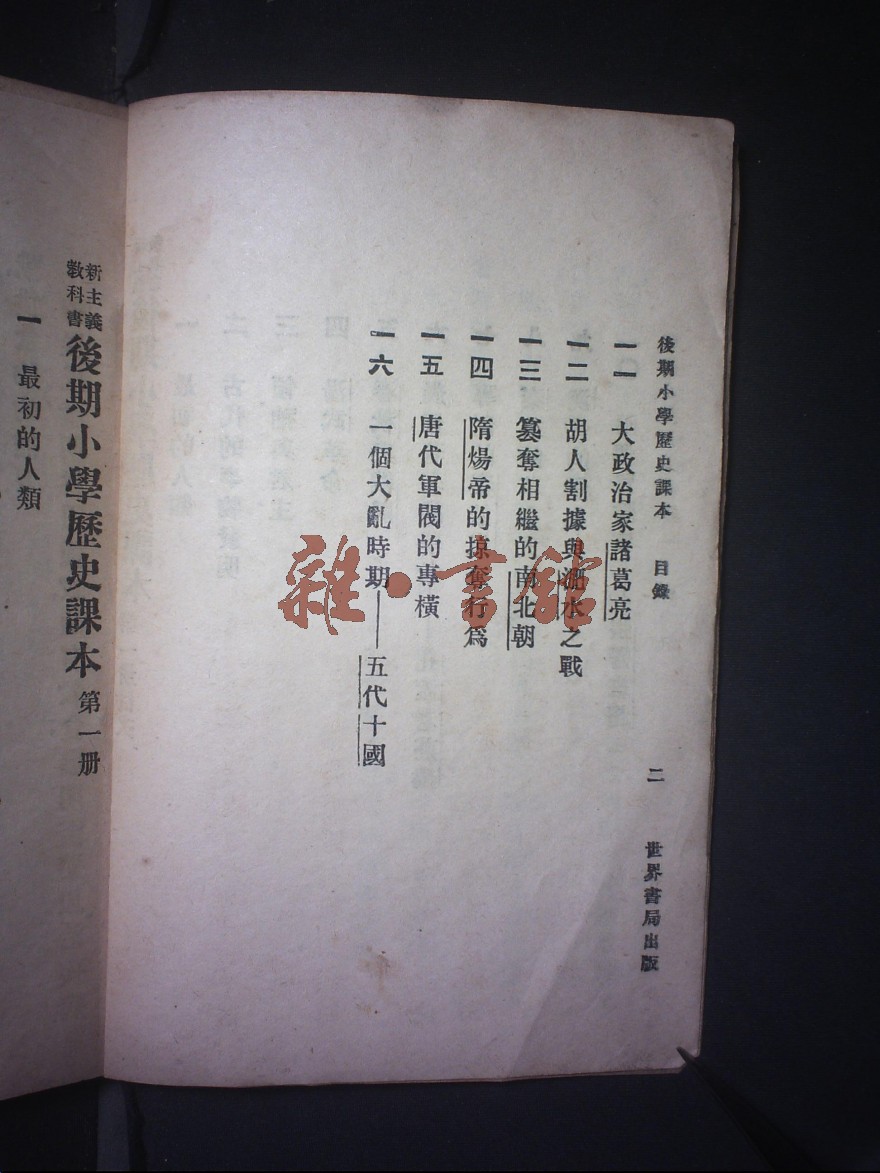 後期小學歷史課本 目錄 二 世界書局出版
一一 大政治家諸葛亮
一二 胡人割據與淝水之戰
一三 篡奪相繼的南北朝
一四 隋煬帝的掠奪行爲
一五 唐代軍閥的專橫
一六 一個大亂時期——五代十國
雜·書館
新主義
教科書
後期小學歷史課本 第一册
一 最初的人類